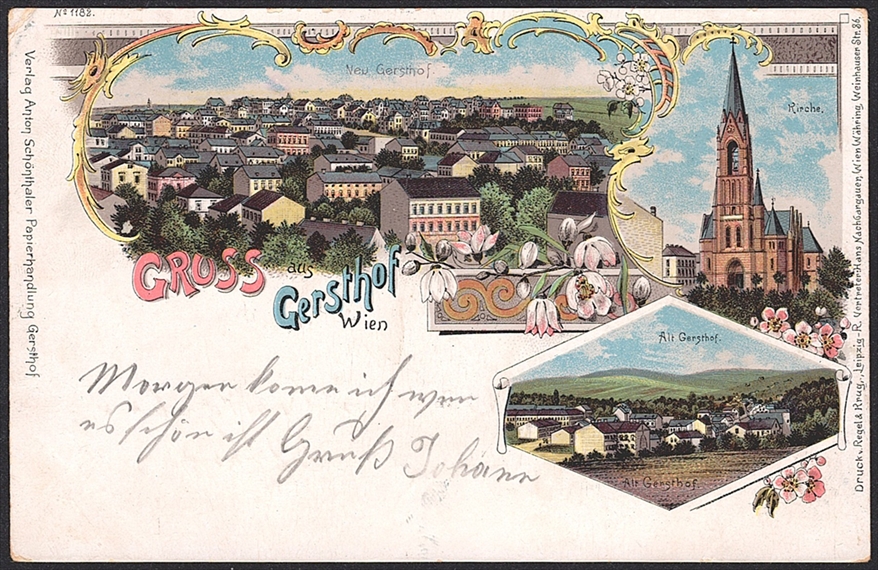 No 1182.
Neu Gersthof.
Kirche.
GRUSS
aus
Gersthof
Wien
Alt Gersthof.
Alt Gersthof.
Morgen kome ich wen
es schön ist Gruß Johann
Verlag Anton Schönthaler Papierhandlung Gersthof
Druck v. Regel & Krug, Leipzig-R. Vertreter: Hans Nachbargauer, Wien Währing, Weinhauser Str. 86.